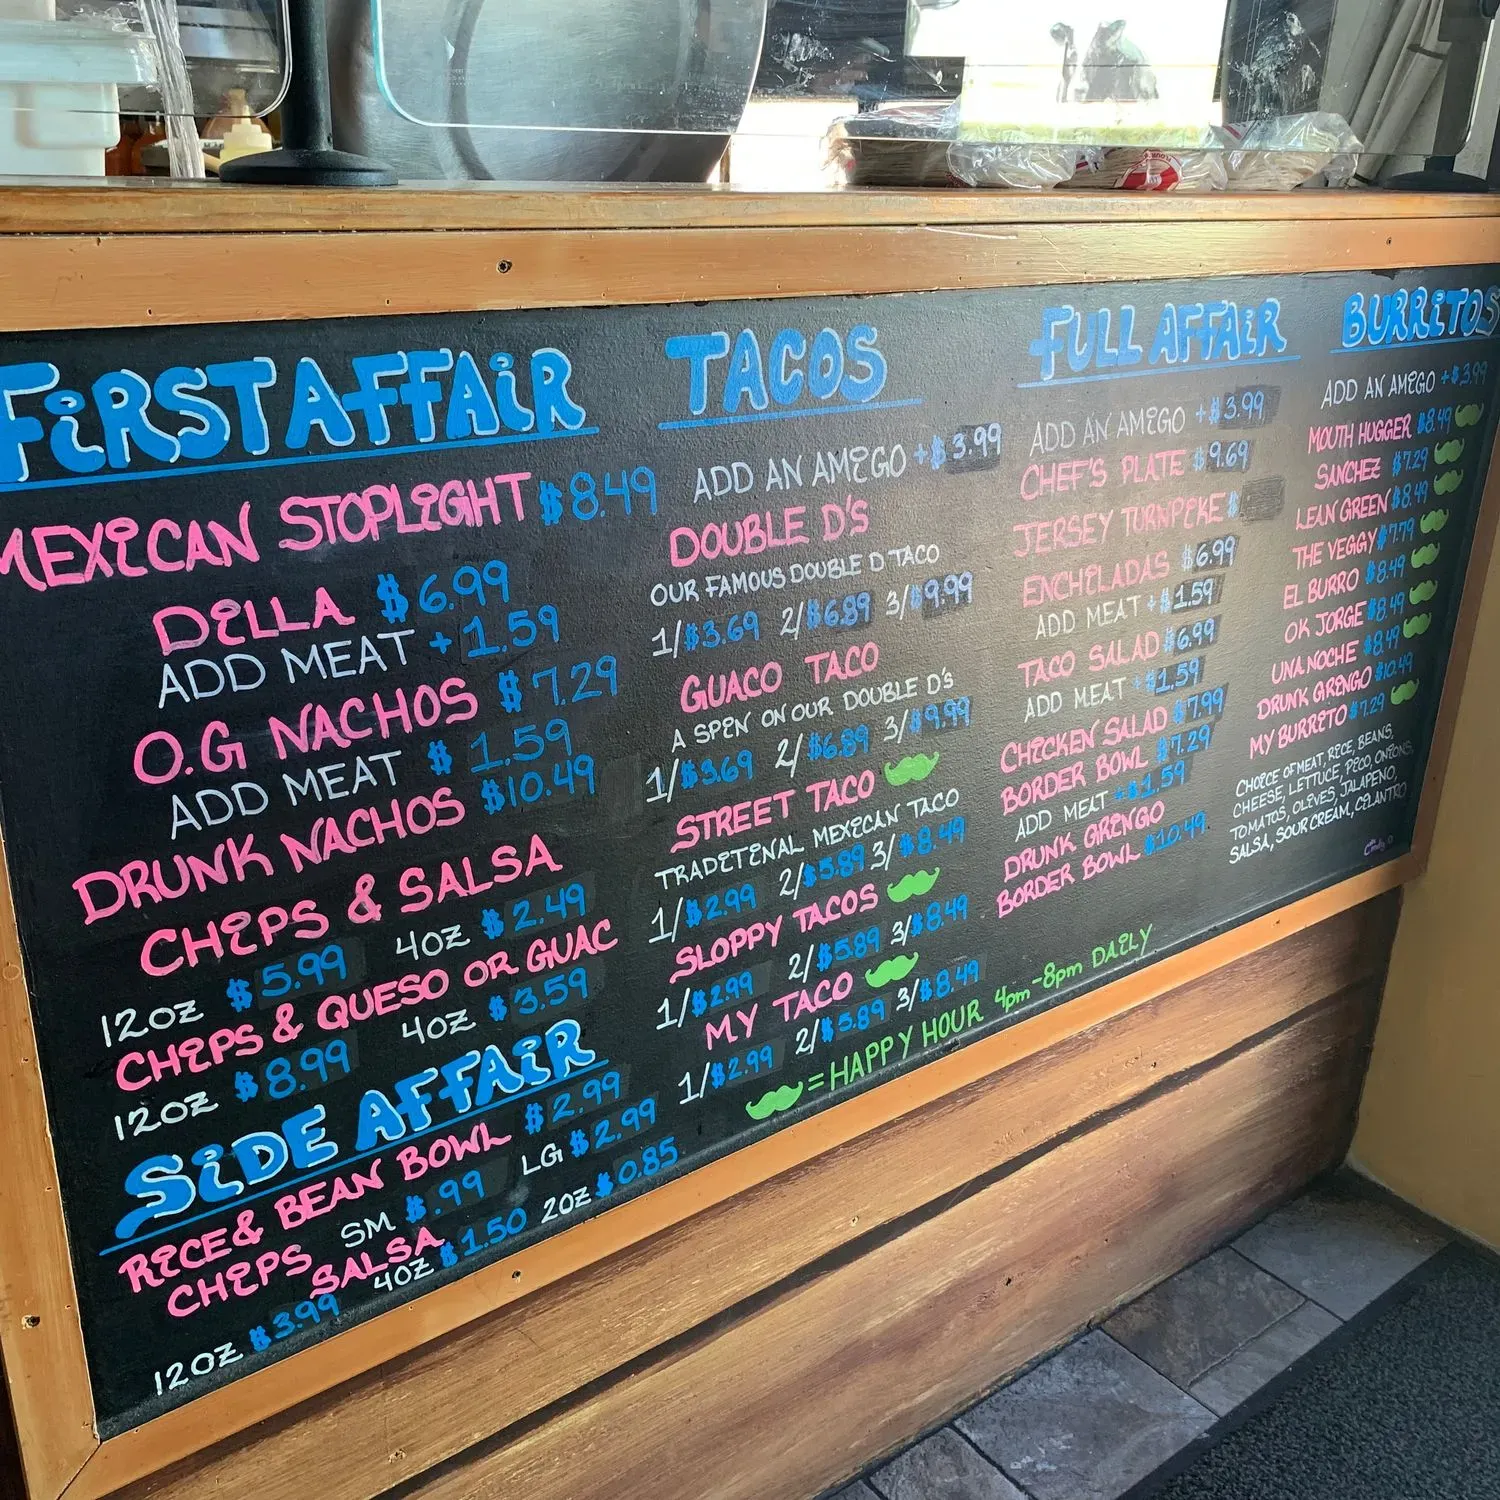 FiRST AFFAiR
MEXiCAN STOPLiGHT $8.49
DiLLA $6.99
ADD MEAT +1.59
O.G NACHOS $7.29
ADD MEAT $1.59
DRUNK NACHOS $10.49
CHiPS & SALSA
12OZ $5.99 4OZ $2.49
CHiPS & QUESO OR GUAC
12OZ $8.99 4OZ $3.59
SiDE AFFAiR
RiCE & BEAN BOWL $2.99
CHiPS SM $.99 LG $2.99
SALSA
12OZ $3.99 4OZ $1.50 2OZ $0.85
TACOS
ADD AN AMiGO +$3.99
DOUBLE D'S
OUR FAMOUS DOUBLE D TACO
1/$3.69 2/$6.89 3/$9.99
GUACO TACO
A SPiN ON OUR DOUBLE D'S
1/$3.69 2/$6.89 3/$9.99
STREET TACO
TRADiTiNAL MEXiCAN TACO
1/$2.99 2/$5.89 3/$8.49
SLOPPY TACOS
1/$2.99 2/$5.89 3/$8.49
MY TACO
1/$2.99 2/$5.89 3/$8.49
= HAPPY HOUR 4pm-8pm DAiLY
FULL AFFAiR
ADD AN AMiGO +$3.99
CHEF'S PLATE $9.69
JERSEY TURNPiKE $
ENCHiLADAS $6.99
ADD MEAT +$1.59
TACO SALAD $6.99
ADD MEAT +$1.59
CHiCKEN SALAD $7.99
BORDER BOWL $7.29
ADD MEAT +$1.59
DRUNK GRiNGO
BORDER BOWL $10.49
BURRiTOS
ADD AN AMiGO +$3.99
MOUTH HUGGER $8.49
SANCHEZ $7.29
LEAN GREEN $8.49
THE VEGGY $7.79
EL BURRO $8.49
OK JORGE $8.49
UNA NOCHE $8.49
DRUNK GRiNGO $10.49
MY BURRiTO $7.29
CHOiCE OF MEAT, RiCE, BEANS,
CHEESE, LETTUCE, PiCO, ONiONS,
TOMATOS, OLiVES, JALAPENO,
SALSA, SOUR CREAM, CiLANTRO